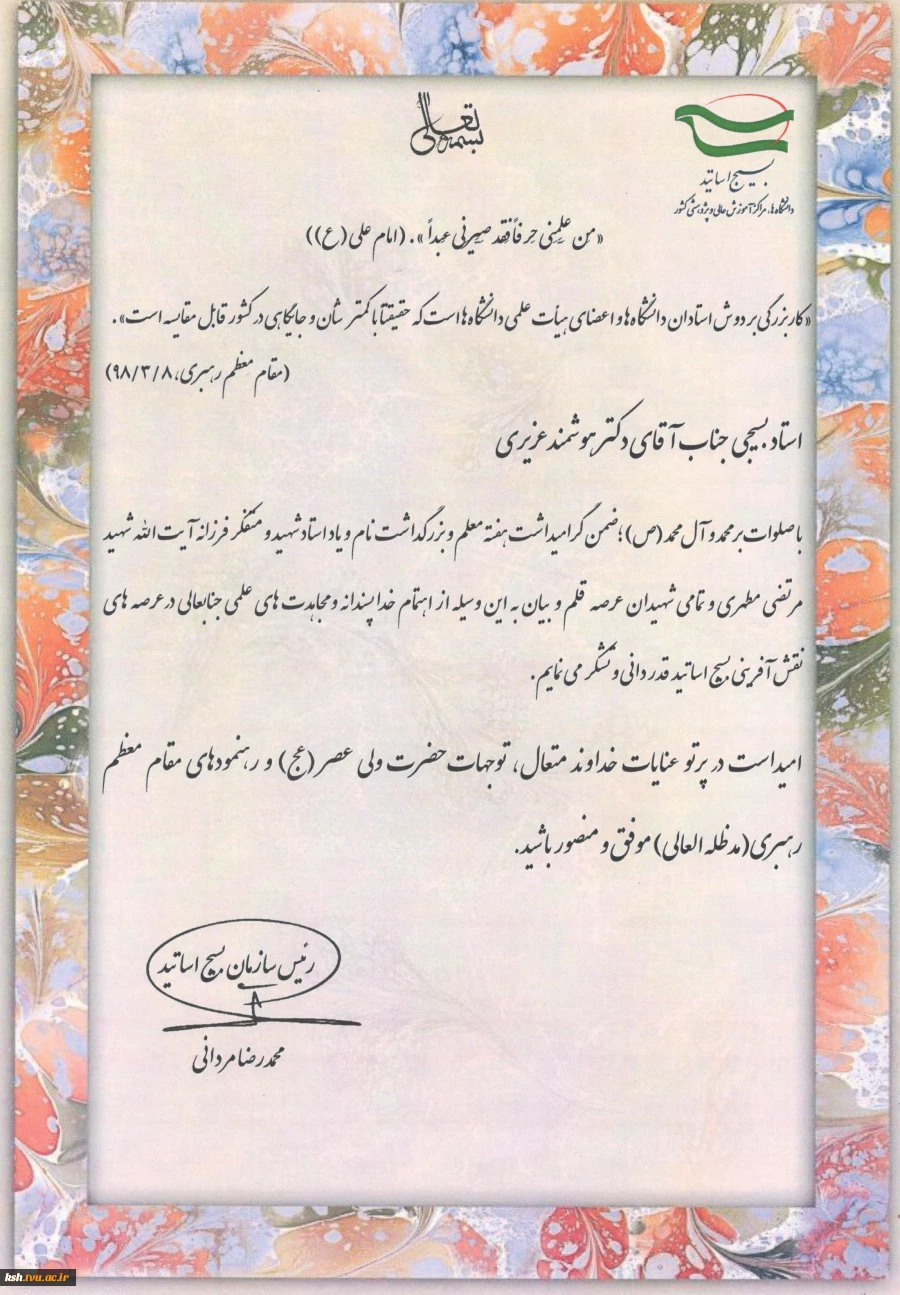 بسمه تعالی
بسیج اساتید
دانشگاه ها، مراکز آموزش عالی و پژوهشی کشور
«من علمنی حرفاً فقد صیرنی عبداً». (امام علی (ع))
«کار بزرگی بر دوش استادان دانشگاه ها و اعضای هیأت علمی دانشگاه ها است که حقیقتا با کمتر شأن و جایگاهی در کشور قابل مقایسه است».
(مقام معظم رهبری، ۹۸/۳/۸)
استاد بسیجی جناب آقای دکتر هوشمند عزیزی
با صلوات بر محمد و آل محمد (ص)؛ ضمن گرامیداشت هفته معلم و بزرگداشت نام و یاد استاد شهید و متفکر فرزانه آیت الله شهید
مرتضی مطهری و تمامی شهیدان عرصه قلم و بیان به این وسیله از اهتمام خداپسندانه و مجاهدت های علمی جنابعالی در عرصه های
نقش آفرینی بسیج اساتید قدردانی و تشکر می نمایم.
امید است در پرتو عنایات خداوند متعال، توجهات حضرت ولی عصر (عج) و رهنمودهای مقام معظم
رهبری (مدظله العالی) موفق و منصور باشید.
رئیس سازمان بسیج اساتید
محمدرضا مردانی
ksh.tvu.ac.ir